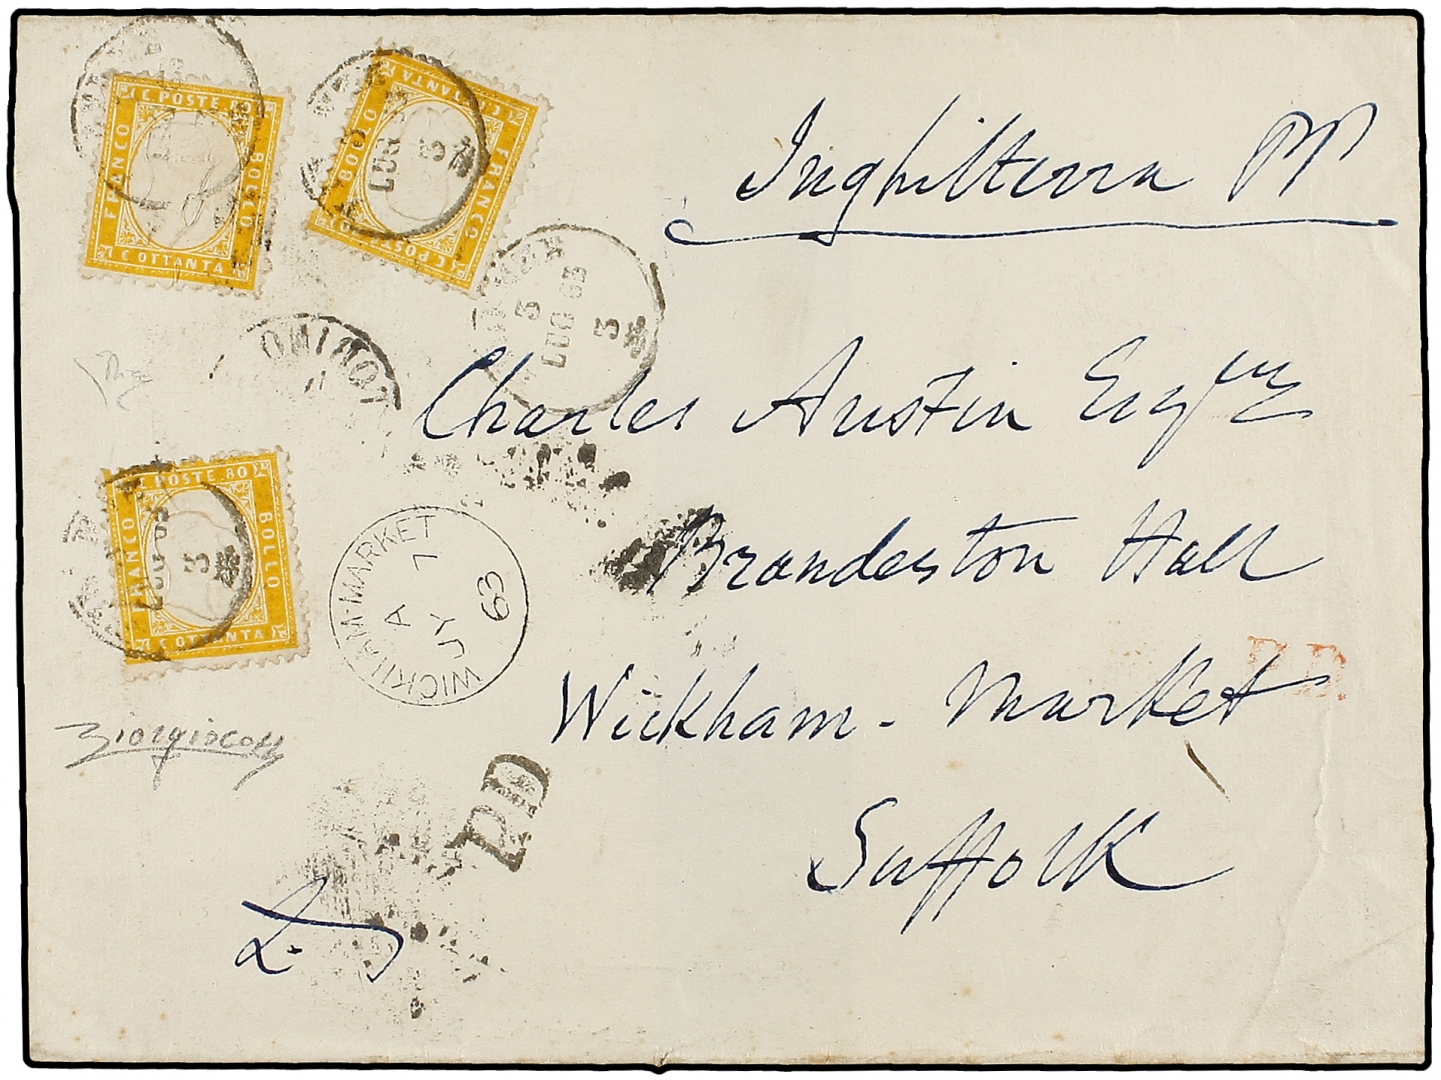 C. POSTE 80
FRANCO
BOLLO
C. OTTANTA
C. POSTE 80
FRANCO
BOLLO
C. OTTANTA
3
LUG
3
LUG 63
3
Inghilterra PP
TORINO
Charles Austin Esqre
C. POSTE 80
FRANCO
BOLLO
C. OTTANTA
3
LUG 63
WICKHAM-MARKET
A
JY 7
63
Brandeston Hall
P.D.
Wickham - Market
P.D.
Suffolk